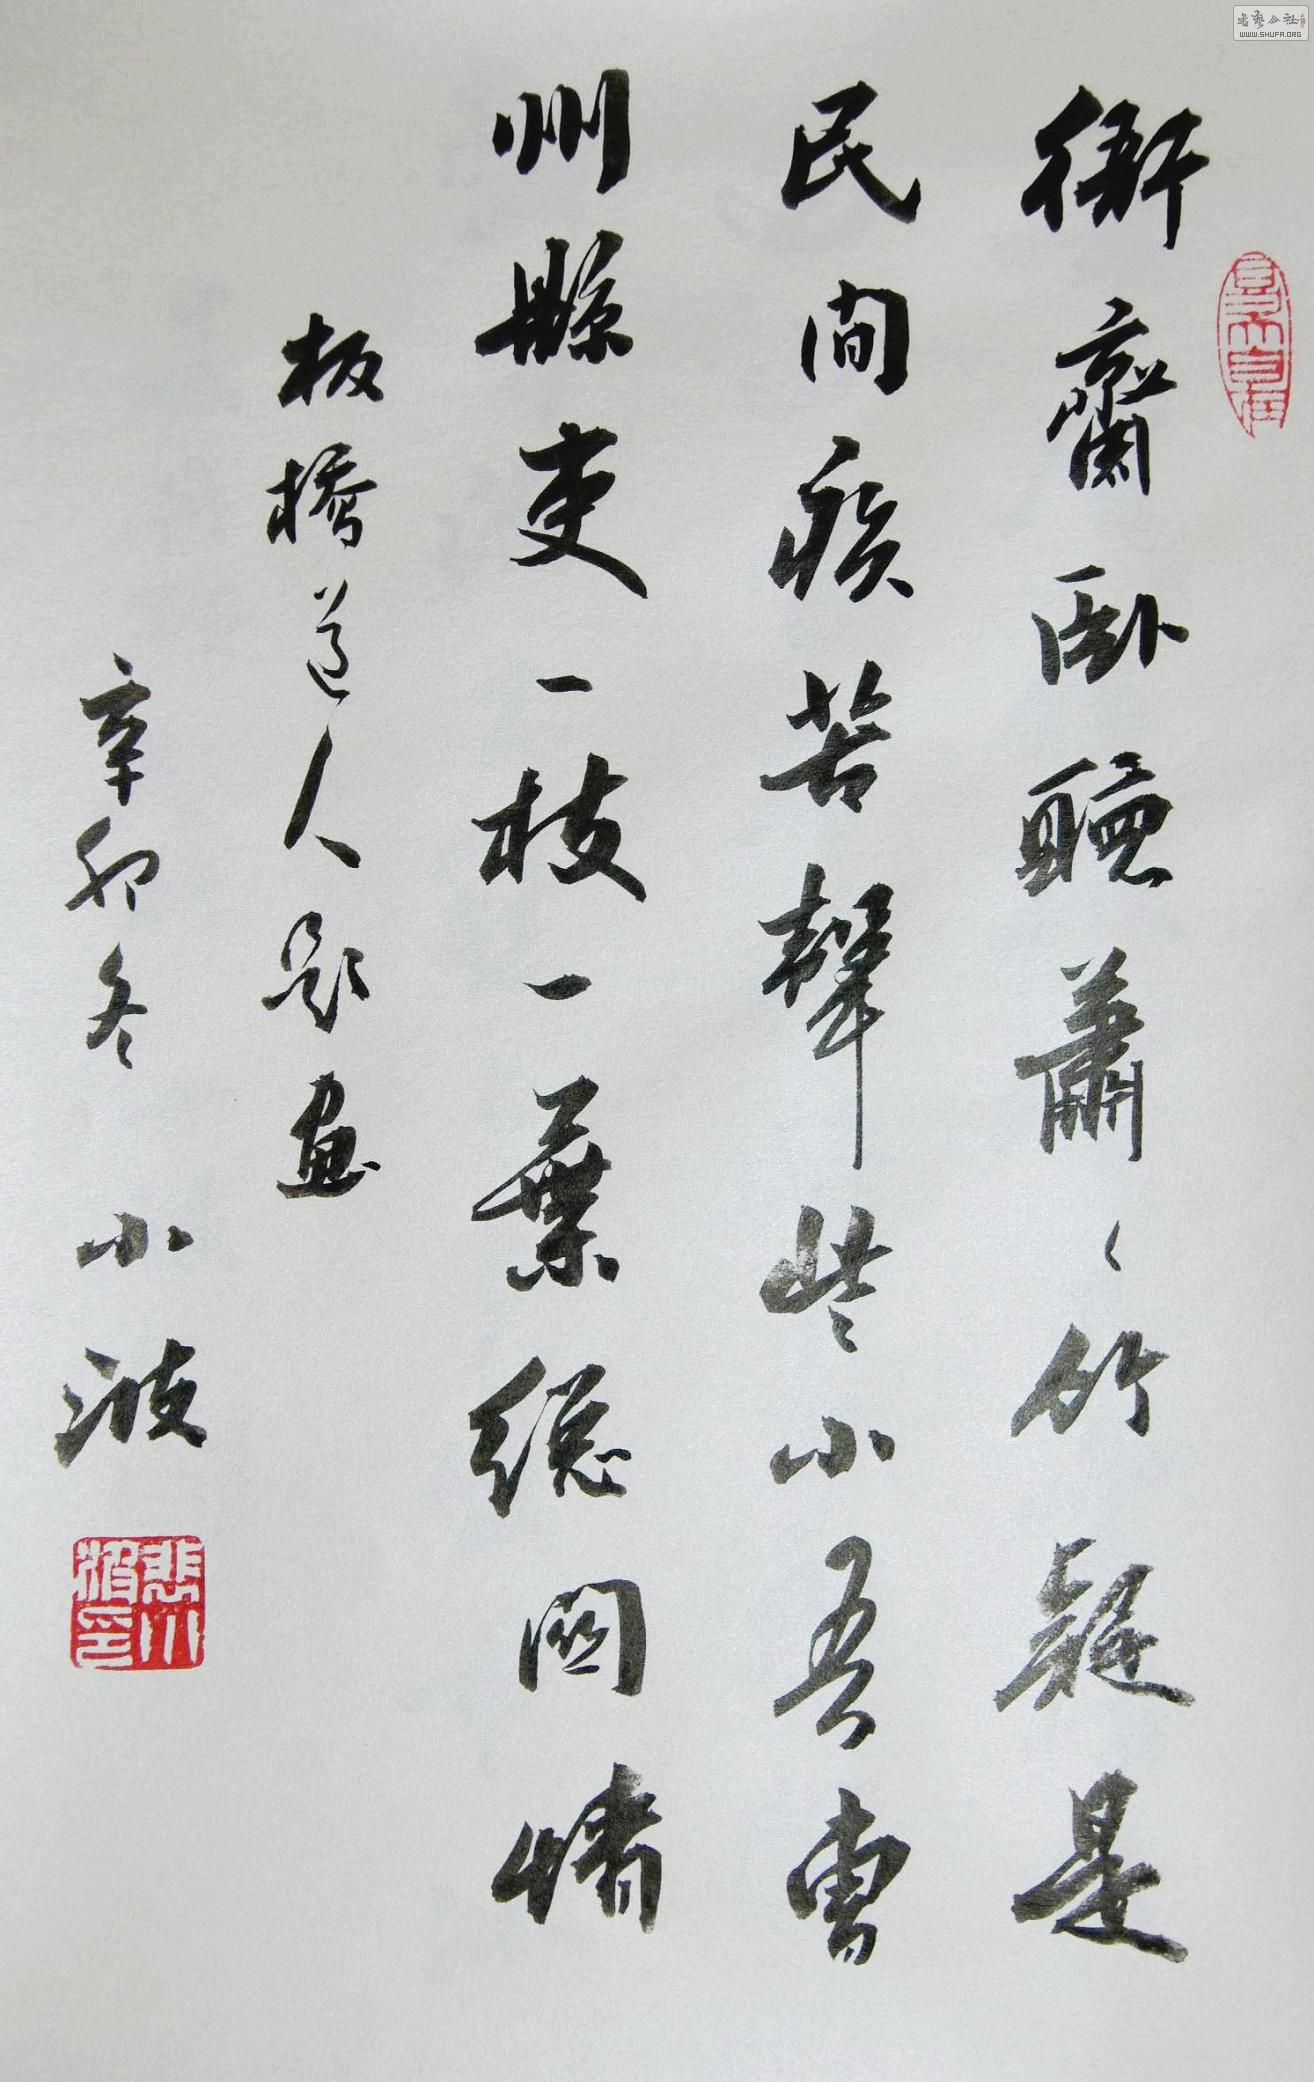 衙齋卧聽蕭〻竹疑是
民间疾苦聲些小吾曹
州縣吏一枝一葉總闗情
板橋道人题畫
辛卯冬 小波
WWW.SHUFA.ORG